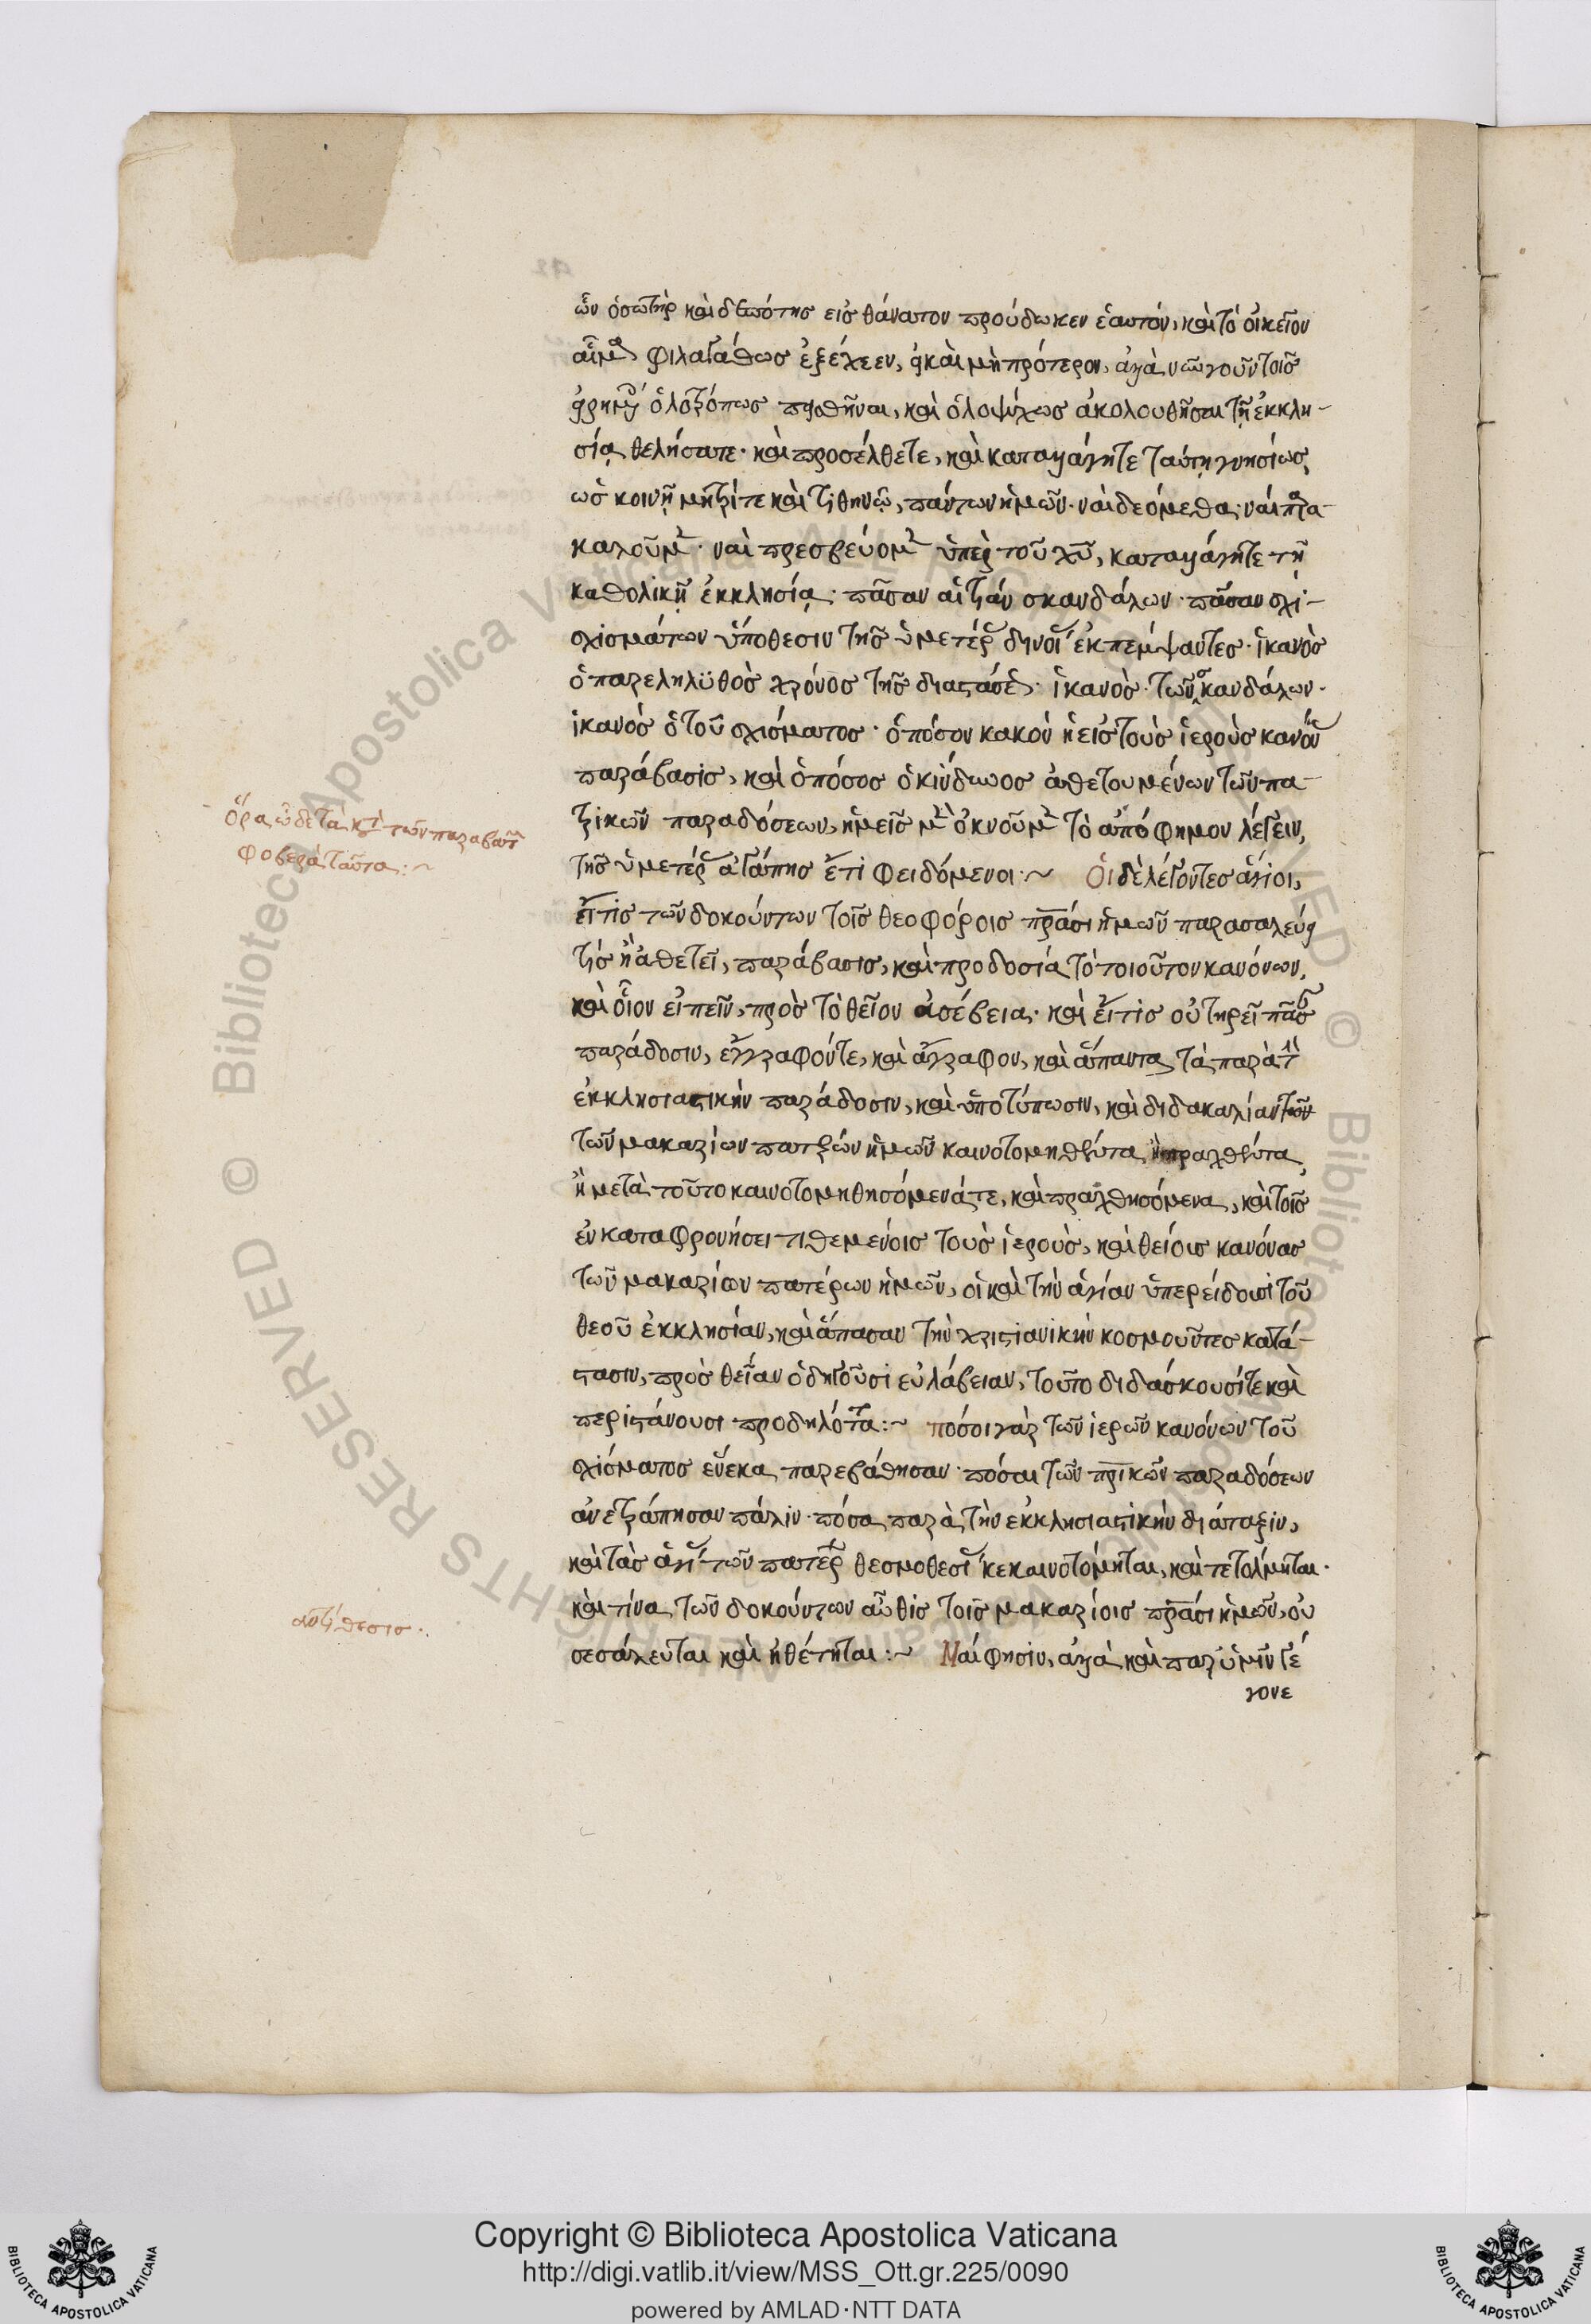 ὧν ὁ σωτὴρ καὶ δεσπότης εἰς θάνατον προύδωκεν ἑαυτόν, καὶ τὸ οἰκεῖον
αἷμα φιλαγάθως ἐξέχεεν, εἰ καὶ μὴ πρότερον, ἀλλὰ νῦν γοῦν τοῖς
εἰρημένοις ὁλοτρόπως πεισθῆναι, καὶ ὁλοψύχως ἀκολουθῆσαι τῇ ἐκκλη-
σίᾳ θελήσατε· καὶ προσέλθετε, καὶ καταλλάγητε ταύτῃ γνησίως,
ὡς κοινῇ μητρί τε καὶ τιθηνῷ, πάντων ἡμῶν· ναὶ δεόμεθα· ναὶ παρα-
καλοῦμεν· ναὶ πρεσβεύομεν ὑπὲρ τοῦ χυ, καταλλάγητε τῇ
καθολικῇ ἐκκλησίᾳ· πᾶσαν αἰτίαν σκανδάλων· πᾶσαν σχι-
σχισμάτων ὑπόθεσιν τῆς ὑμετέρας διανοίας ἐκπέμψαντες· ἱκανὸς
ὁ παρεληλυθὸς χρόνος τῆς διαστάσεως· ἱκανὸς τῶν σκανδάλων·
ἱκανὸς ὁ τοῦ σχίσματος· ὁπόσον κακὸν ἡ εἰς τοὺς ἱεροὺς κανόνας
παράβασις, καὶ ὁπόσος ὁ κίνδυνος ἀθετουμένων τῶν πα-
τρικῶν παραδόσεων, ἡμεῖς μὲν ὀκνοῦμεν τὸ ἀπόφημον λέγειν,
τῆς ὑμετέρας ἀγάπης ἔτι φειδόμενοι:~ Οἱ δὲ λέγοντες ἅγιοι,
εἴ τις τῶν δοκούντων τοῖς θεοφόροις πράσι ἡμῶν παρασαλεύει
τίς ἢ ἀθετεῖ, παράβασις, καὶ προδοσία τὸ τοιοῦτον κανόνων,
καὶ οἷον εἰπεῖν, πρὸς τὸ θεῖον ἀσέβεια· καὶ εἴ τις οὐ τηρεῖ πᾶσαν
παράδοσιν, ἔγγραφόν τε, καὶ ἄγραφον, καὶ ἅπαντα τὰ παρὰ τὴν
ἐκκλησιαστικὴν παράδοσιν, καὶ ὑποτύπωσιν, καὶ διδακαλίαν τῶν
τῶν μακαρίων πατέρων ἡμῶν καινοτομηθέντα, ἢ πραχθέντα,
ἢ μετὰ τοῦτο καινοτομηθησόμενά τε, καὶ πραχθησόμενα, καὶ τοῖς
ἐν καταφρονήσει τιθεμένοις τοὺς ἱεροὺς, καὶ θείοις κανόνας
τῶν μακαρίων πατέρων ἡμῶν, οἳ καὶ τὴν ἁγίαν ὑπερείδουσι τοῦ
θεοῦ ἐκκλησίαν, καὶ ἅπασαν τὴν χριστιανικὴν κοσμοῦντες κατά-
στασιν, πρὸς θείαν ὁδηγοῦσι εὐλάβειαν, τοῦτο διδάσκουσί τε καὶ
περιστάνουσι προδηλότατα:~ πόσοι γὰρ τῶν ἱερῶν κανόνων τοῦ
σχίσματος ἕνεκα παρεβάθησαν· πόσαι τῶν πρικῶν παραδόσεων
ἀνετράπησαν πάλιν· πόσα παρὰ τὴν ἐκκλησιαστικὴν διάταξιν,
καὶ τὰς ἁγίας τῶν πατέρων θεσμοθεσίας κεκαινοτόμηται, καὶ τετόλμηται·
καὶ τίνα τῶν δοκούντων αὖθις τοῖς μακαρίοις πράσι ἡμῶν, οὐ
σεσάλευται καὶ ἠθέτηται:~ Ναί φησιν, ἀλλὰ καὶ παρ' ὑμῖν γέ
γονε
ὅρα ὧδε τὰ κατὰ τῶν παραβατῶν
φοβερὰ ταῦτα:~
ἀντίθεσις·
Copyright © Biblioteca Apostolica Vaticana
http://digi.vatlib.it/view/MSS_Ott.gr.225/0090
powered by AMLAD·NTT DATA
BIBLIOTECA APOSTOLICA VATICANA
BIBLIOTECA APOSTOLICA VATICANA